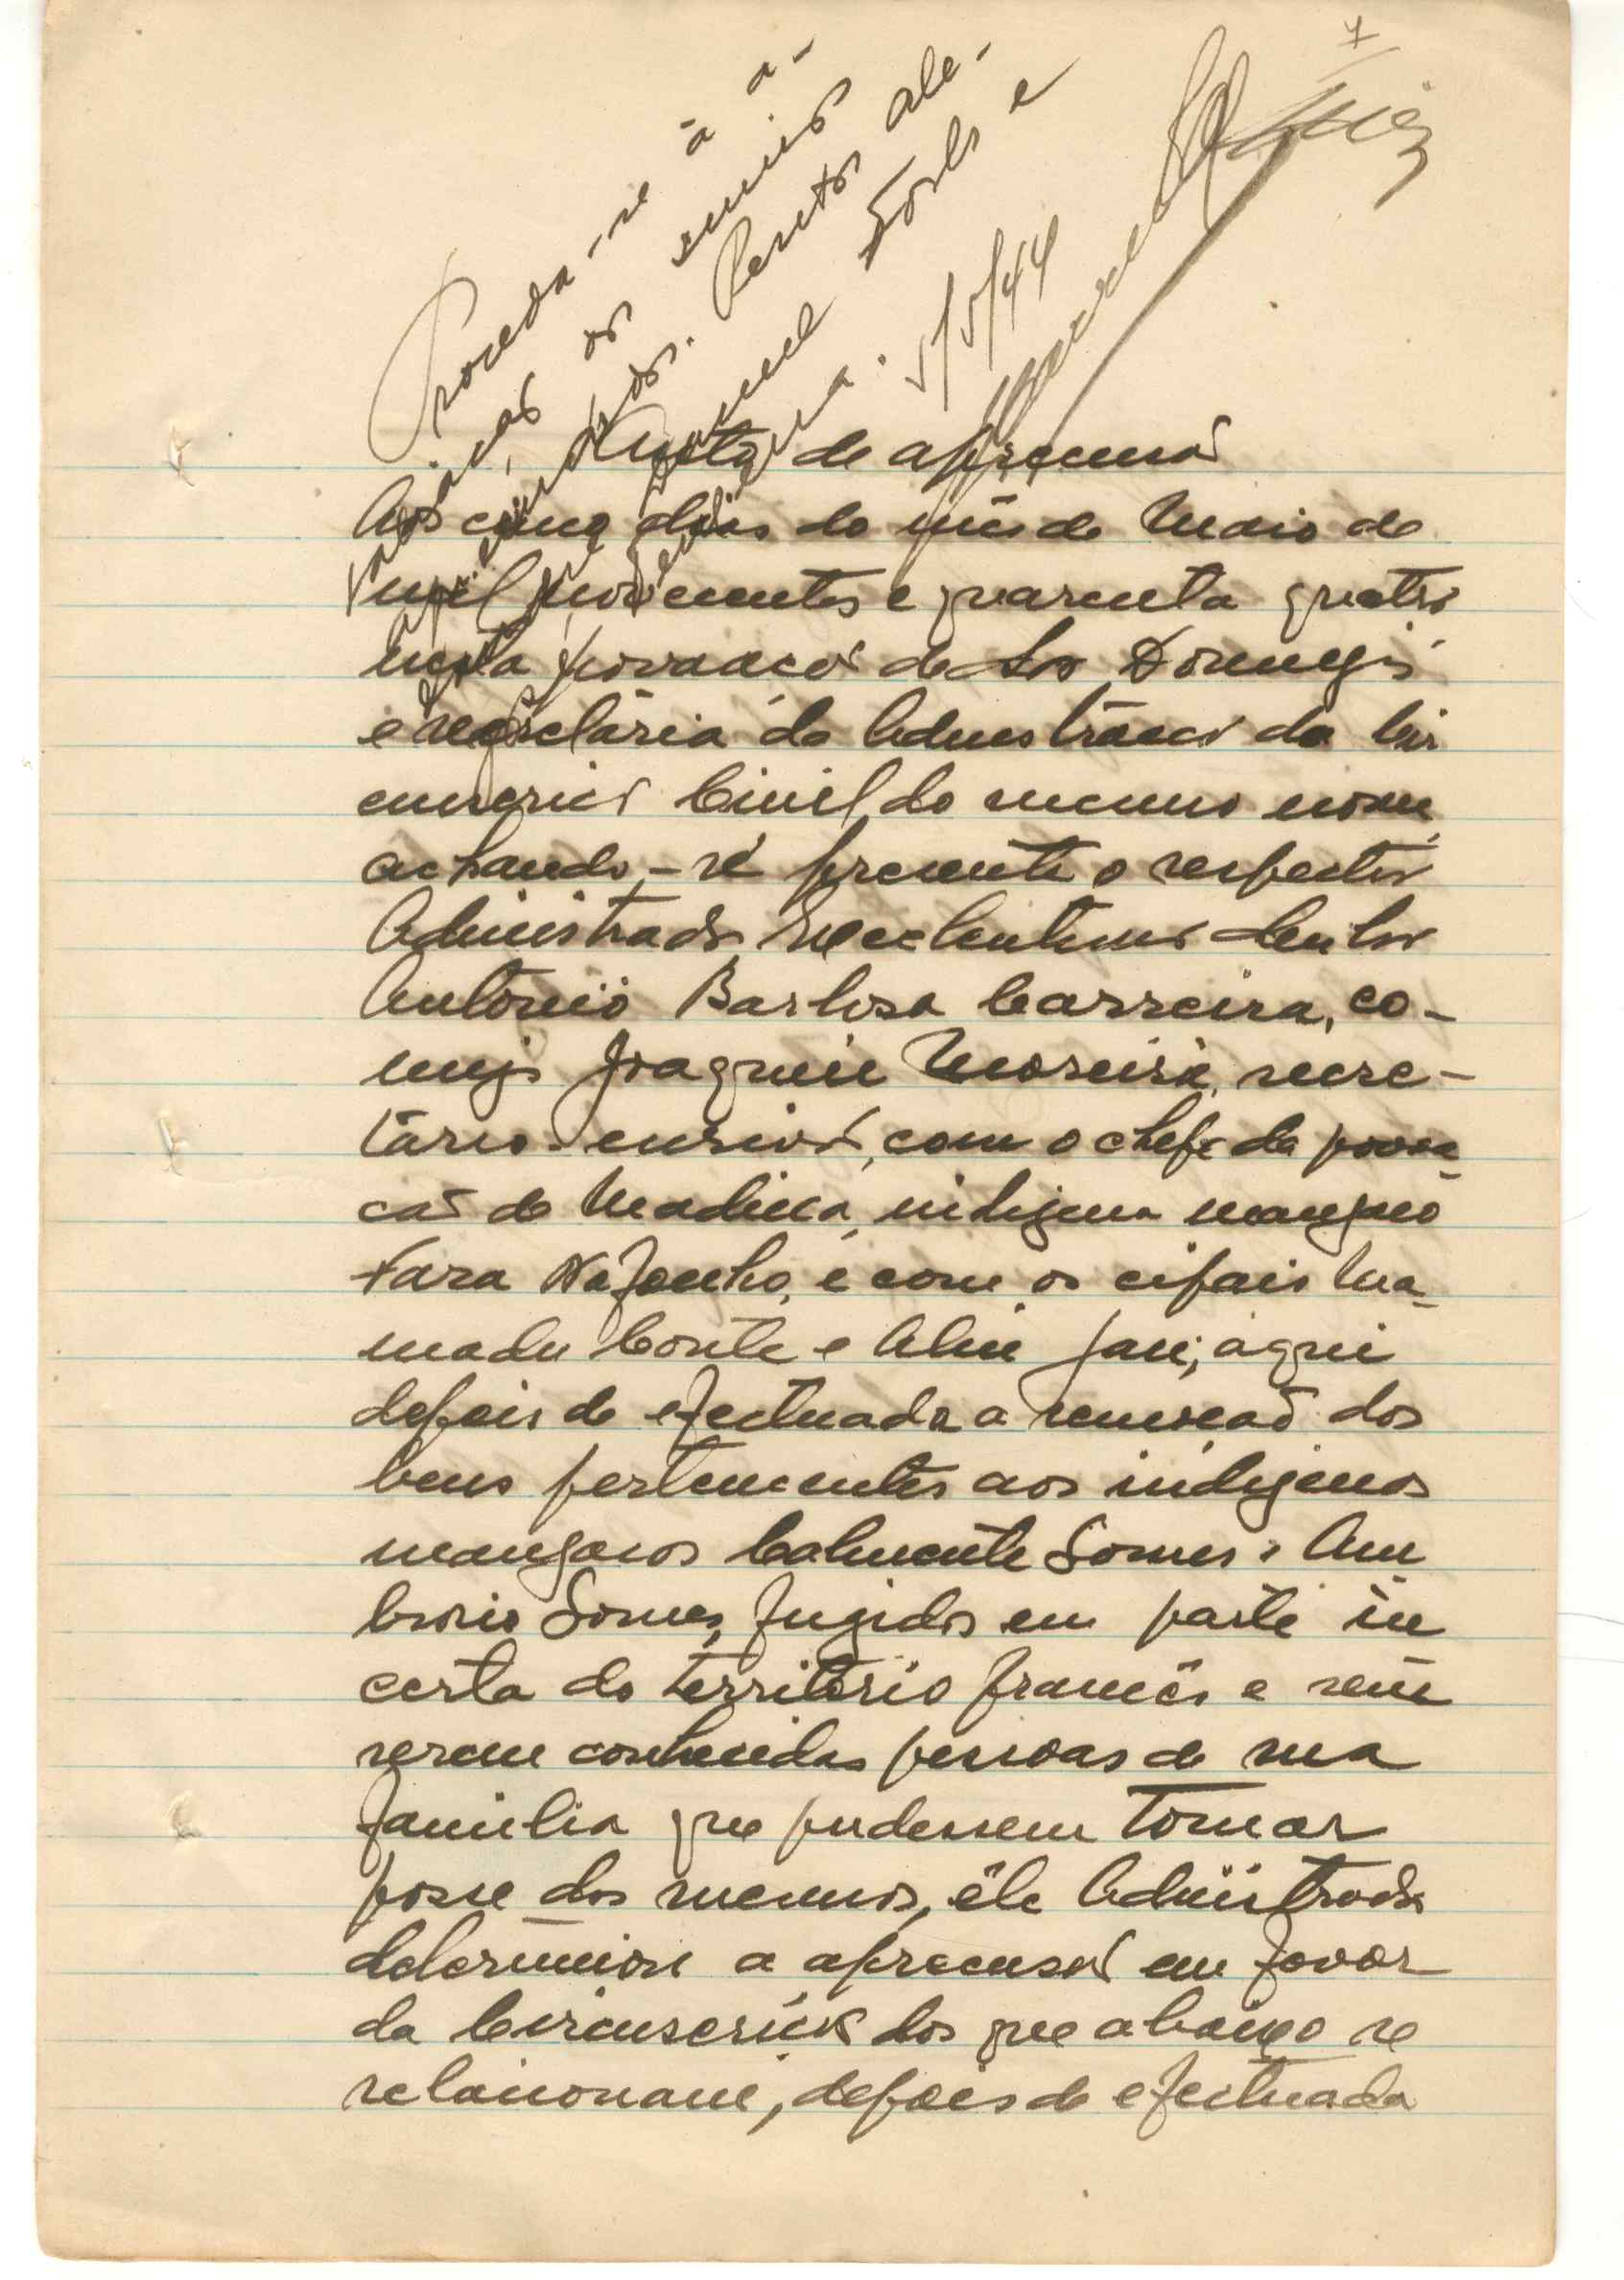 Proceda-se à a-
os semis
Peritos Ale-
e
5/5/44
Auto de apreensão
Aos cinco dias do mês de Maio de
mil novecentos e quarenta quatro
nesta povoação de São Domingos
e secretaria da Administração da Cir
cunscrição Civil do mesmo nome,
achando-se presente o respectivo
Administrador Excelentissimo Senhor
António Barbosa Carreira, co-
migo Joaquim Moreira, secre-
tário-escrivão, com o chefe da povoa-
ção de Madina, indigena manjaco
e com os cipais Ma-
madu Conte e Aliu Jau; aqui
depois de efectuada a remoção dos
bens pertencentes aos indigenas
manjacos Calmente Gomes e Am
brosio Gomes, fugidos em parte in
certa do território francês e sem
serem conhecidas pessoas de sua
familia que pudessem tomar
posse dos mesmos, êle Administrador
determinou a apreensão em favor
da Circunscrição dos que abaixo se
relacionam, depois de efectuada